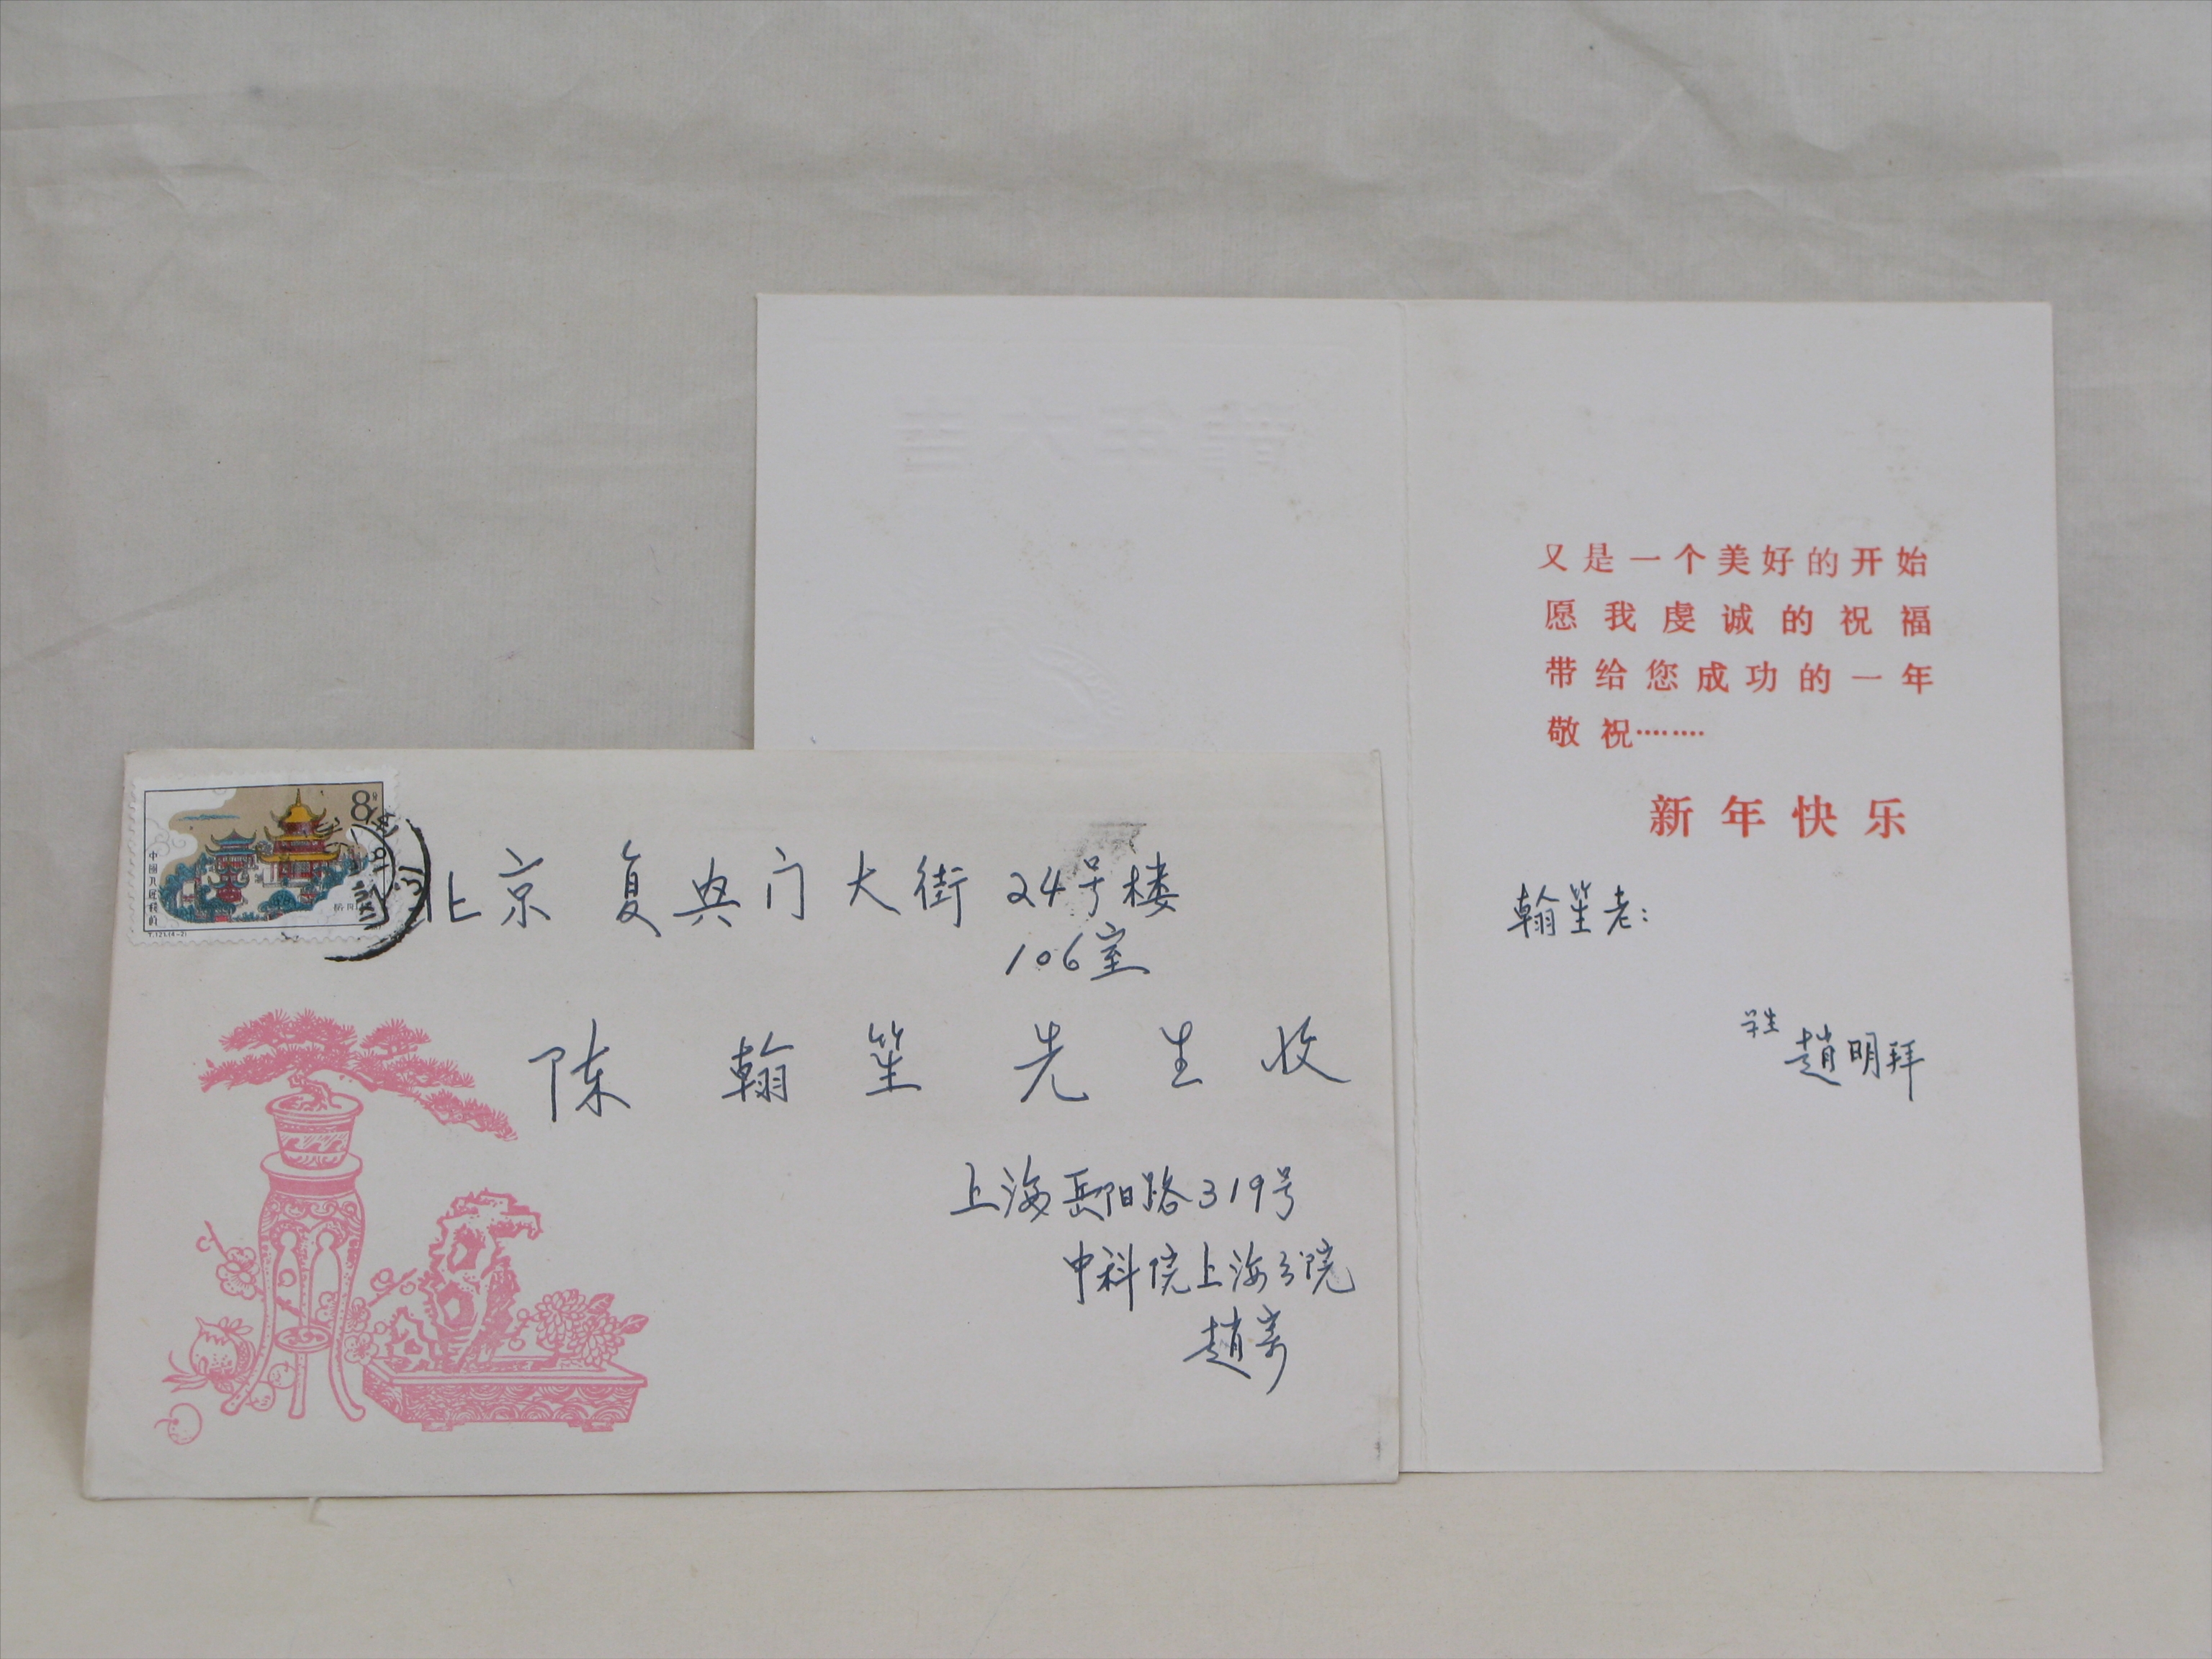 8分
中国人民邮政
T.121.(4-2)
北京 复兴门大街 24号楼
106室
陈翰笙先生收
上海岳阳路319号
中科院上海分院
趙寄
又是一个美好的开始
愿我虔诚的祝福
带给您成功的一年
敬祝········
新年快乐
翰笙老：
学生
趙明拜